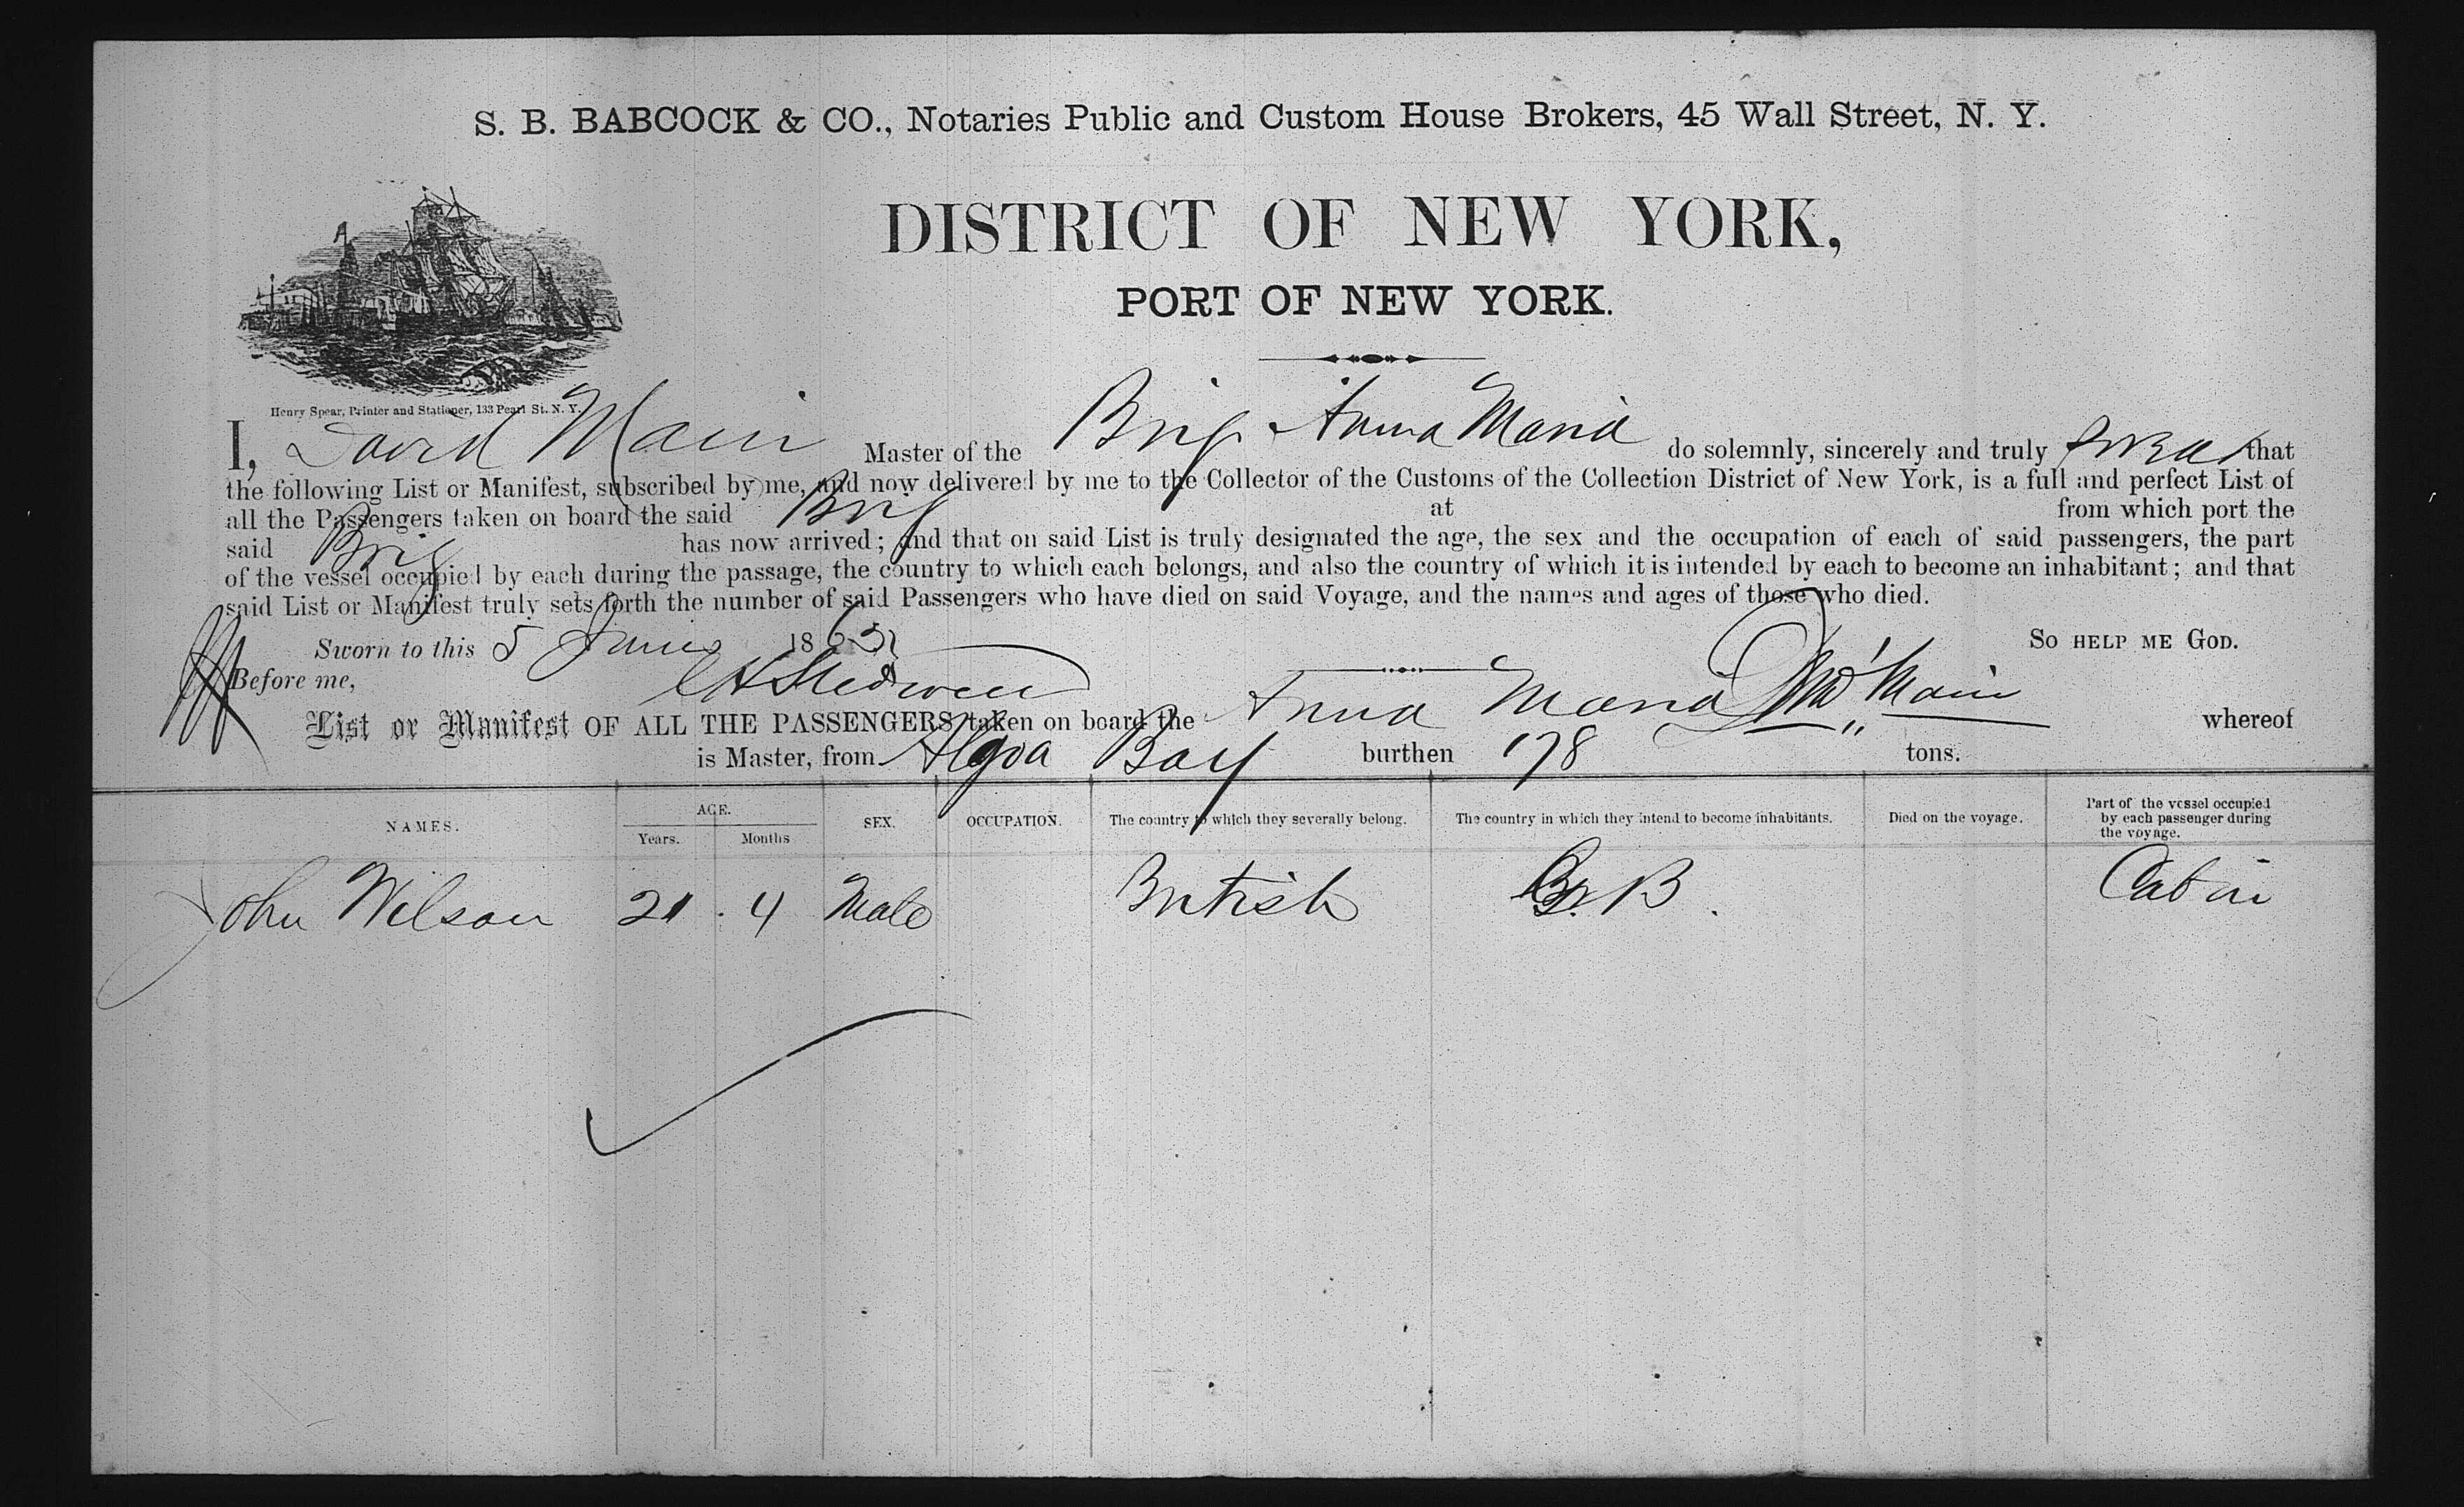 S. B. BABCOCK & CO., Notaries Public and Custom House Brokers, 45 Wall Street, N. Y.
DISTRICT OF NEW YORK,
PORT OF NEW YORK.
Henry Spear, Printer and Stationer, 133 Pearl St. N. Y.
I, David Main Master of the Brig Anna Maria do solemnly, sincerely and truly swear that
the following List or Manifest, subscribed by me, and now delivered by me to the Collector of the Customs of the Collection District of New York, is a full and perfect List of
all the Passengers taken on board the said Brig at from which port the
said Brig has now arrived; and that on said List is truly designated the age, the sex and the occupation of each of said passengers, the part
of the vessel occupied by each during the passage, the country to which each belongs, and also the country of which it is intended by each to become an inhabitant; and that
said List or Manifest truly sets forth the number of said Passengers who have died on said Voyage, and the names and ages of those who died.
Sworn to this 5 June 1863 SO HELP ME GOD.
Before me,
Main
List or Manifest OF ALL THE PASSENGERS taken on board the Anna Maria whereof
is Master, from Algoa Bay burthen 178 tons.
NAMES. AGE. Years. Months SEX. OCCUPATION. The country to which they severally belong. The country in which they intend to become inhabitants. Died on the voyage. Part of the vessel occupied by each passenger during the voyage.
John Wilson 21 . 4 Male British Gr. B. Cabin